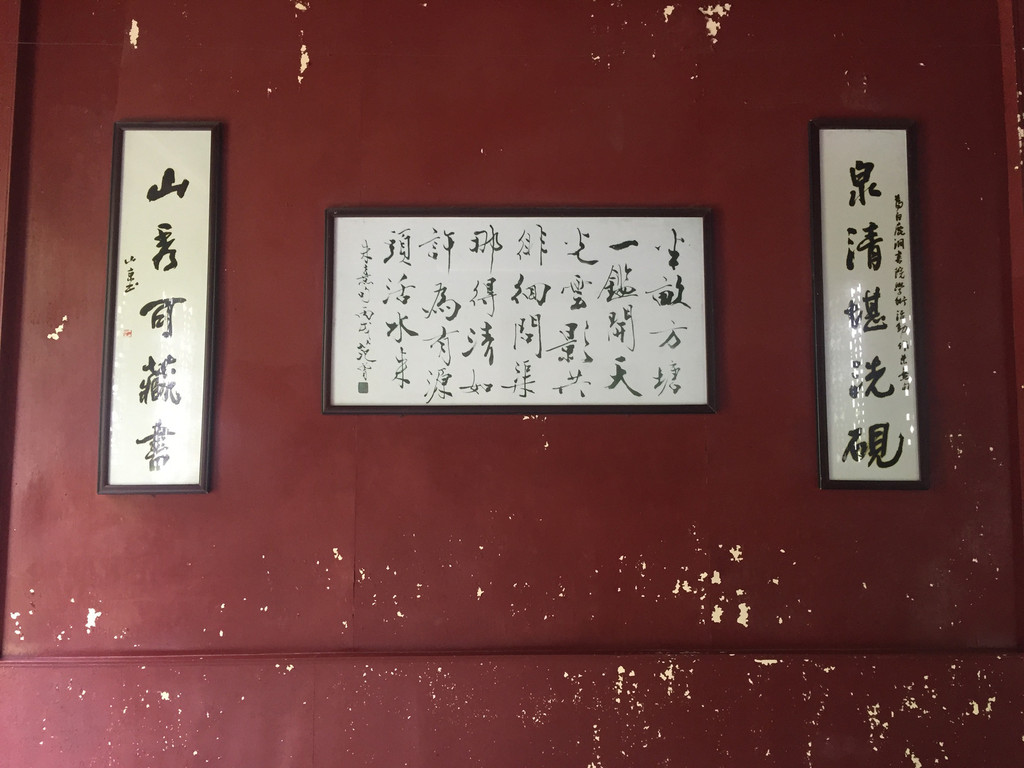 泉清堪洗硯
為白鹿洞書院學術活動
半畝方塘
一鑑開天
光雲影共
徘徊問渠
那得清如
許為有源
頭活水來
山秀可藏書